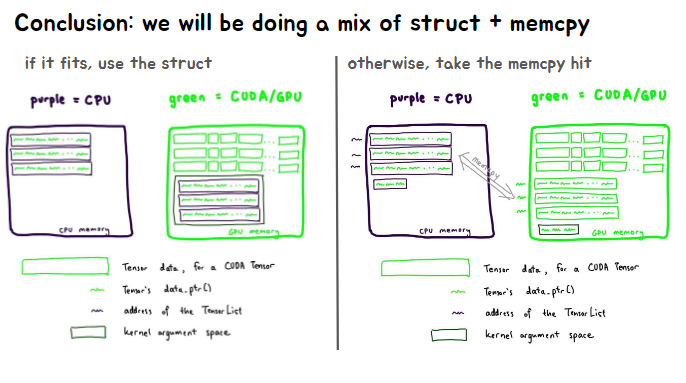 Conclusion: we will be doing a mix of struct + memcpy
if it fits, use the struct
purple = CPU
green = CUDA/GPU
CPU memory
GPU memory
Tensor data, for a CUDA Tensor
Tensor's data_ptr()
address of the TensorList
kernel argument space
otherwise, take the memcpy hit
purple = CPU
green = CUDA/GPU
memcpy
CPU memory
GPU memory
Tensor data, for a CUDA Tensor
Tensor's data_ptr()
address of the TensorList
kernel argument space